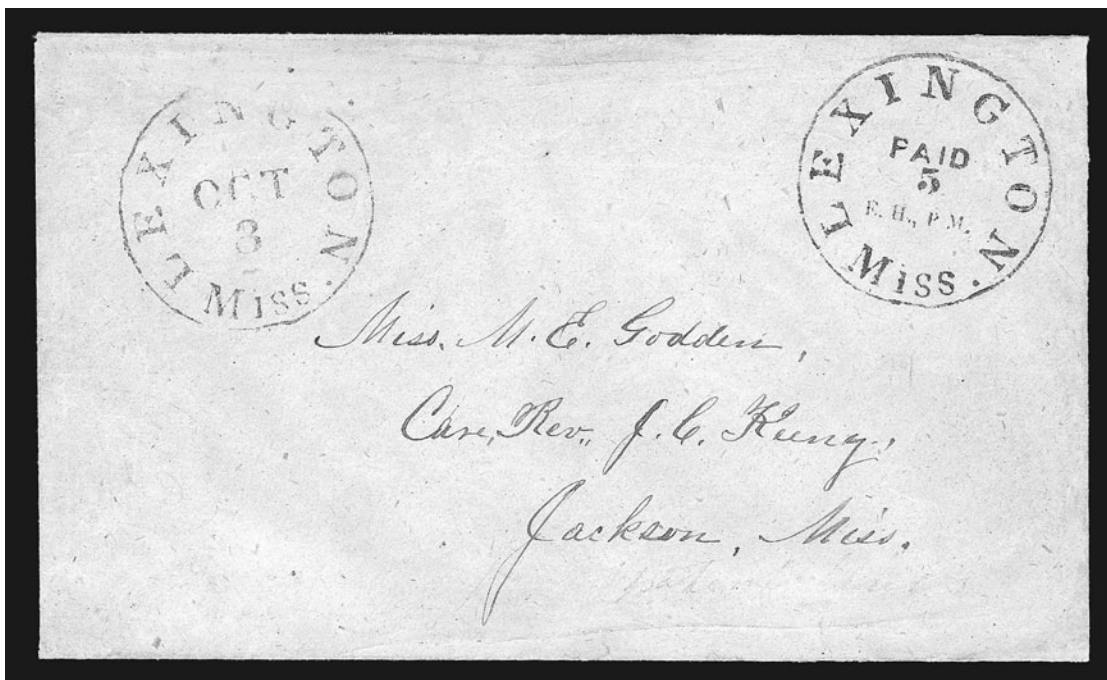 LEXINGTON
OCT
3
MISS.
LEXINGTON
PAID
5
E. H., P. M.
MISS.
Miss. M. E. Godden,
Care, Rev. J. C. Keeny,
Jackson, Miss.